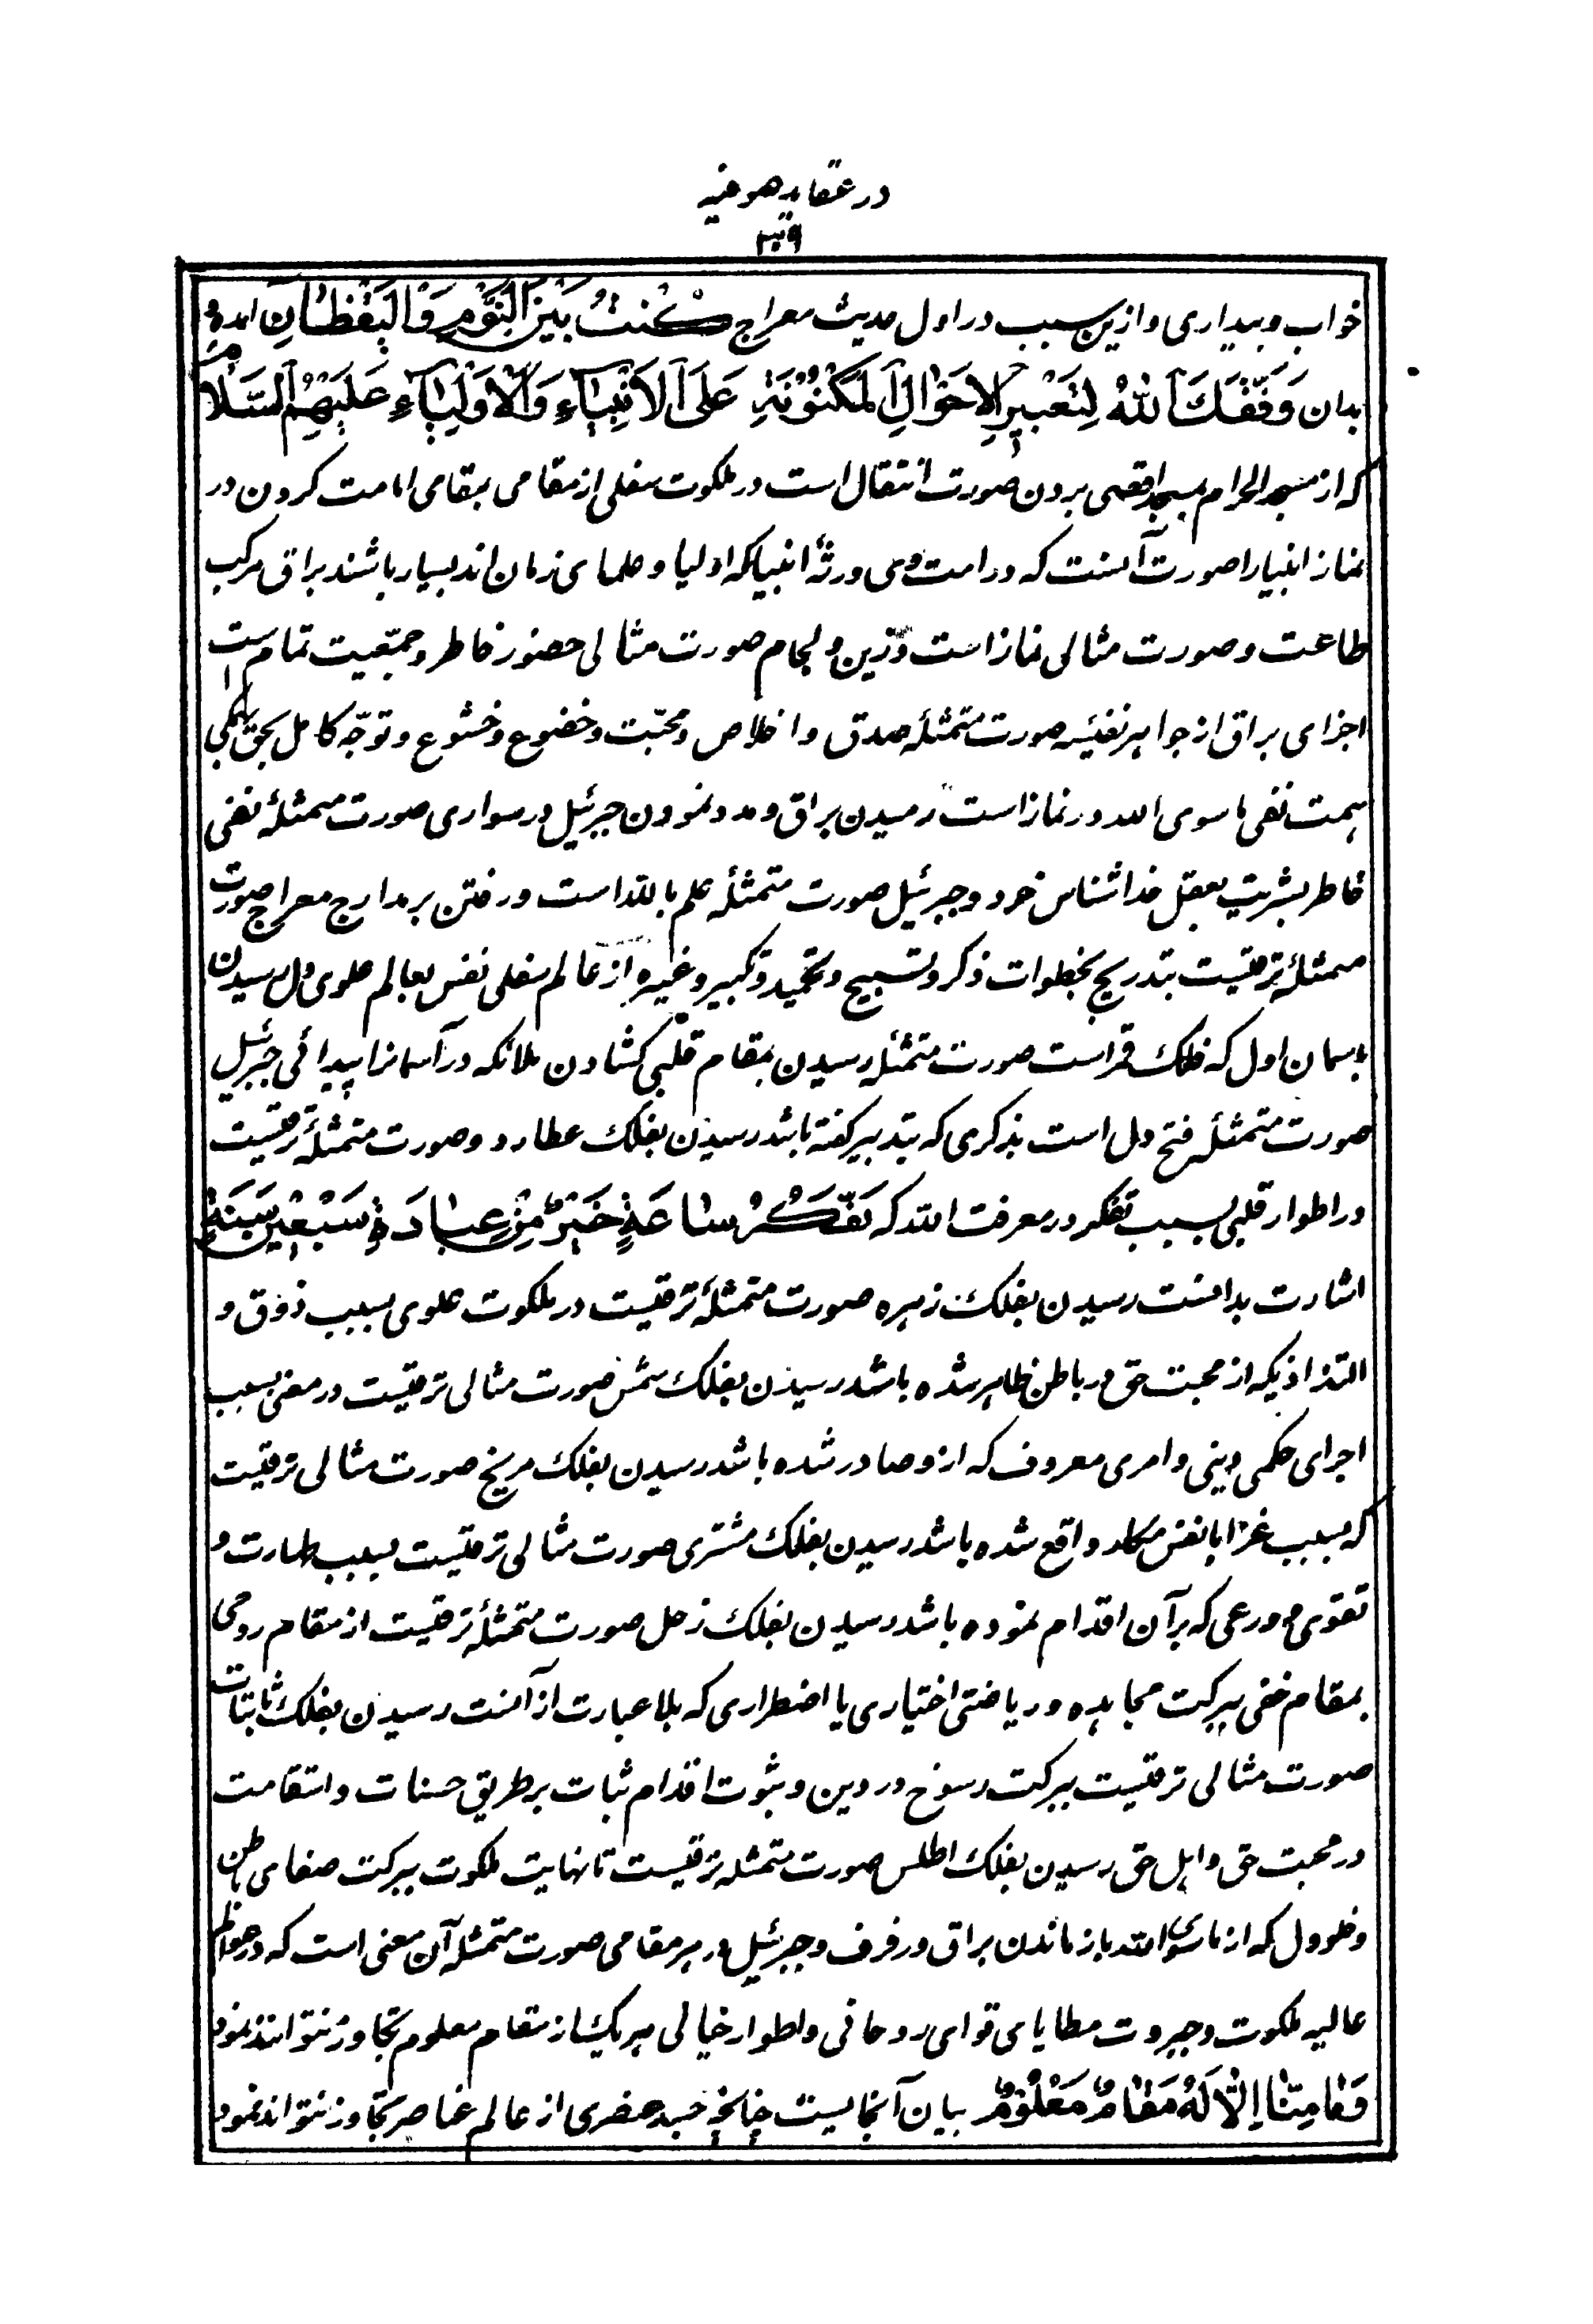 در عقاید صوفیه
۳۷۹
خواب و بیداری و ازین سبب در اول حدیث معراج كُنْتُ بَيْنَ النَّوْمِ وَالْيَقْظَانِ آمده
بدان وَفَّقَكَ اللهُ لِتَعْبِيرِ الْاَحْوَالِ الْمَكْنُوْنَةِ عَلَى الْاَنْبِيَآءِ وَالْاَوْلِيَآءِ عَلَيْهِمُ السَّلَامُ
که از مسجد الحرام بمسجد اقصی بردن صورت انتقال است در ملکوت سفلی از مقامی بمقامی امامت کردن در
نماز انبیا را صورت آنست که در امت وی ورثهٔ انبیا که اولیا و علمای زمان اند بسیار باشند براق مرکب
طاعت و صورت مثالی نماز است و زین و لجام صورت مثالی حضور خاطر و جمعیّت تمام است
اجزای براق از جواهر نفیسه صورت متمثلهٔ صدق و اخلاص و محبّت و خضوع و خشوع و توجّه کامل بحق بهمگی
همت نفی ما سوی الله در نماز است رمیدن براق و مدد نمودن جبرئیل در سواری صورت متمثلهٔ نفی
خاطر بشریت بعقل خداشناس خرد و جبرئیل صورت متمثلهٔ علم بالله است و رفتن بر مدارج معراج صورت
متمثلهٔ ترقیست بتدریج بخطوات ذکر و تسبیح و تحمید و تکبیر و غیره از عالم سفلی نفس بعالم علوی دل رسیدن
بآسمان اول که فلک قمر است صورت متمثلهٔ رسیدن بمقام قلبی گشادن ملائکه در آسمانرا پیدائی جبرئیل
صورت متمثلهٔ فتح دل است بذکری که بتدبیر گفته باشد رسیدن بفلک عطارد و صورت متمثلهٔ ترقیست
در اطوار قلبی بسبب تفکر در معرفت الله که تَفَكُّرُ سَاعَةٍ خَيْرٌ مِّنْ عِبَادَةِ سَبْعِيْنَ سَنَةٍ
اشارت بدانست رسیدن بفلک زهره صورت متمثلهٔ ترقیست در ملکوت علوی بسبب ذوق و
التذاذیکه از محبت حق در باطن ظاهر شده باشد رسیدن بفلک شمس صورت مثالی ترقیست در معنی بسبب
اجرای حکمی دینی و امری معروف که ازو صادر شده باشد رسیدن بفلک مریخ صورت مثالی ترقیست
که بسبب غزا با نفس مکار واقع شده باشد رسیدن بفلک مشتری صورت مثالی ترقیست بسبب طهارت و
تقوی و ورعی که بر آن اقدام نموده باشد رسیدن بفلک زحل صورت متمثلهٔ ترقیست از مقام روحی
بمقام خفی ببرکت مجاهده و ریاضتی اختیاری یا اضطراری که بلا عبارت از آنست رسیدن بفلک ثابتات
صورت مثالی ترقیست ببرکت رسوخ در دین و ثبوت اقدام ثبات بر طریق حسنات و استقامت
در محبت حق و اهل حق رسیدن بفلک اطلس صورت متمثله ترقیست تا نهایت ملکوت ببرکت صفای باطن
و خلو دل که از ماسوی الله باز ماندن براق و رفرف و جبرئیل در هر مقامی صورت متمثله آن معنی است که در عوالم
عالیه ملکوت و جبروت مطایای قوای روحانی و اطوار خیالی هر یک از مقام معلوم تجاوز نتوانند نمود
وَمَا مِنَّا اِلَّا لَهُ مَقَامٌ مَّعْلُوْمٌ بیان آنجاییست چنانچه جسد عنصری از عالم عناصر تجاوز نتواند نمود